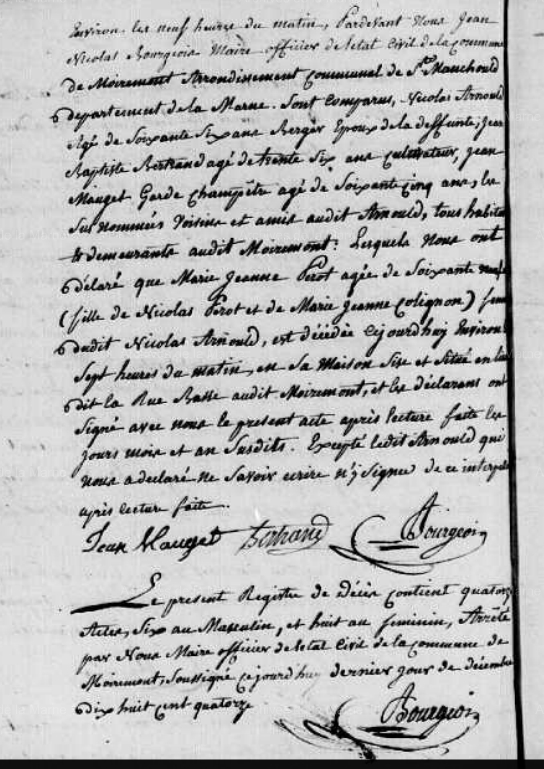 Environ les neuf heures du matin, Pardevant Nous Jean
Nicolas Bourgeois Maire officier de letat Civil de la commune
de Moiremont Arrondissement Communel de Ste Manehould
departement de la Marne. Sont Comparus, Nicolas Arnould
Agé de Soixante Six ans Berger Epoux de la deffunte, Jean
Baptiste Bertrand agé de trente Six ans Cultivateur, Jean
Mauget Garde Champêtre agé de Soixante Cinq ans, les
Sus nommés Voisins et amis audit Arnould, tous habitans
& demeurants audit Moiremont: Lesquels nous ont
déclaré que Marie Jeanne Perot agée de Soixante neuf
(fille de Nicolas Perot et de Marie Jeanne Colignon) femme
dudit Nicolas Arnould, est décédée cejourdhuy Environ
Sept heures du matin, en Sa Maison Sise et Situé en lieu
dit la Rue Basse audit Moiremont, et les déclarans ont
Signé avec nous le present acte après lecture faite les
jours mois et an Susdits. Excepté ledit Arnould qui
nous a declaré ne Savoir ecrire n'y Signer de ce interpelé
après lecture faite.
Jean Mauget Bertrand Bourgeois
Le present Registre de Décès contient quatorze
Actes, Six au Masculin, et huit au feminin, Arrêté
par Nous Maire officier de letat Civil de la commune de
Moiremont, Soussigné cejourdhuy dernier jour de décembre
dix huit cent quatorze
Bourgeois